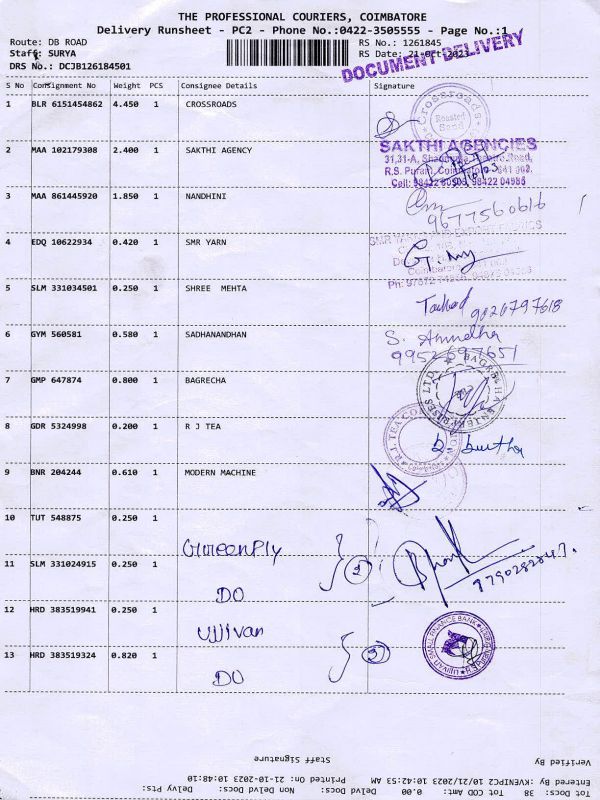 THE PROFESSIONAL COURIERS, COIMBATORE
Delivery Runsheet - PC2 - Phone No.:0422-3505555 - Page No.:1
Route: DB ROAD RS No.: 1261845
Staff: SURYA RS Date: 21-Oct-2023
DRS No.: DCJB126184501 DOCUMENT DELIVERY
S No Consignment No Weight PCS Consignee Details Signature
1 BLR 6151454862 4.450 1 CROSSROADS
Crossroads
2 MAA 102179308 2.400 1 SAKTHI AGENCY
SAKTHI AGENCIES
R.S. Puram, Coimbatore
3 MAA 861445920 1.850 1 NANDHINI
9677560616
4 EDQ 10622934 0.420 1 SMR YARN
5 SLM 331034501 0.250 1 SHREE MEHTA
9020797618
6 GYM 560581 0.580 1 SADHANANDHAN
S.
9952697651
7 GMP 647874 0.800 1 BAGRECHA
8 GDR 5324998 0.200 1 R J TEA
9 BNR 204244 0.610 1 MODERN MACHINE
10 TUT 548875 0.250 1
GreenPly 2
11 SLM 331024915 0.250 1
DO
12 HRD 383519941 0.250 1
Ujjivan 2
13 HRD 383519324 0.820 1
DO
Staff Signature Verified By
Entered By: KVENIPC2 10/21/2023 10:42:53 AM Printed On: 21-10-2023 10:48:10
Tot Docs: 38 Tot COD Amt: 0.00 Delvd Docs: Non Delvd Docs: Delvy Pts: